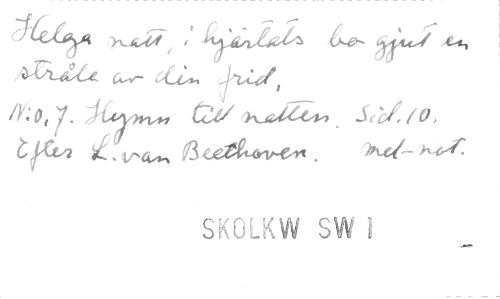 Helga natt, i hjärtats bo gjut en
stråle av din frid,
N:o, 7. Hymn till natten. Sid. 10.
Efter L. van Beethoven. mel-not.
SKOLKW SW 1